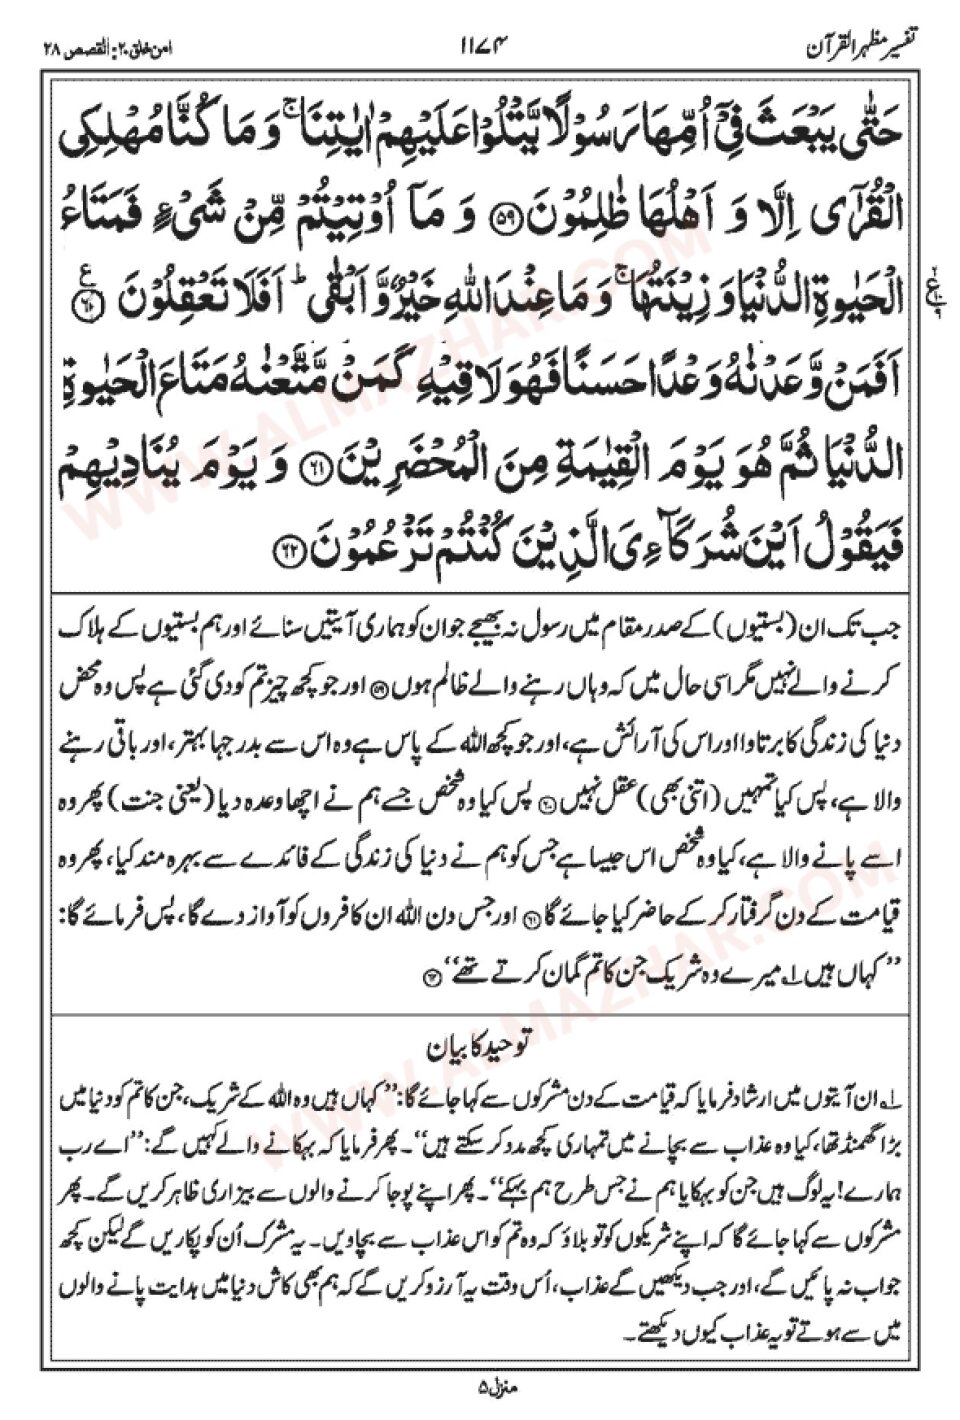 تفسیر مظہر القرآن
۱۱۷۴
امن خلق ۲۰: القصص ۲۸
حَتّٰى يَبْعَثَ فِيْٓ اُمِّهَا رَسُوْلًا يَّتْلُوْا عَلَيْهِمْ اٰيٰتِنَا ۚ وَمَا كُنَّا مُهْلِكِي
الْقُرٰٓى اِلَّا وَ اَهْلُهَا ظٰلِمُوْنَ ۝۵۹ وَ مَآ اُوْتِيْتُمْ مِّنْ شَيْءٍ فَمَتَاعُ
الْحَيٰوةِ الدُّنْيَا وَ زِيْنَتُهَا ۚ وَ مَا عِنْدَ اللّٰهِ خَيْرٌ وَّ اَبْقٰى ؕ اَفَلَا تَعْقِلُوْنَ ۝۶۰ ع
اَفَمَنْ وَّعَدْنٰهُ وَعْدًا حَسَنًا فَهُوَ لَاقِيْهِ كَمَنْ مَّتَّعْنٰهُ مَتَاعَ الْحَيٰوةِ
الدُّنْيَا ثُمَّ هُوَ يَوْمَ الْقِيٰمَةِ مِنَ الْمُحْضَرِيْنَ ۝۶۱ وَ يَوْمَ يُنَادِيْهِمْ
فَيَقُوْلُ اَيْنَ شُرَكَآءِيَ الَّذِيْنَ كُنْتُمْ تَزْعُمُوْنَ ۝۶۲
جب تک ان (بستیوں) کے صدر مقام میں رسول نہ بھیجے جو ان کو ہماری آیتیں سنائے اور ہم بستیوں کے ہلاک
کرنے والے نہیں مگر اسی حال میں کہ وہاں رہنے والے ظالم ہوں ۵۹ اور جو کچھ چیز تم کو دی گئی ہے پس وہ محض
دنیا کی زندگی کا برتاوا اور اس کی آرائش ہے، اور جو کچھ اللہ کے پاس ہے وہ اس سے بدرجہا بہتر، اور باقی رہنے
والا ہے، پس کیا تمہیں (اتنی بھی) عقل نہیں ۶۰ پس کیا وہ شخص جسے ہم نے اچھا وعدہ دیا (یعنی جنت) پھر وہ
اسے پانے والا ہے، کیا وہ شخص اس جیسا ہے جس کو ہم نے دنیا کی زندگی کے فائدے سے بہرہ مند کیا، پھر وہ
قیامت کے دن گرفتار کر کے حاضر کیا جائے گا ۶۱ اور جس دن اللہ ان کافروں کو آواز دے گا، پس فرمائے گا:
”کہاں ہیں ۱؎ میرے وہ شریک جن کا تم گمان کرتے تھے“ ۶۲
توحید کا بیان
۱؎ ان آیتوں میں ارشاد فرمایا کہ قیامت کے دن مشرکوں سے کہا جائے گا: ”کہاں ہیں وہ اللہ کے شریک، جن کا تم کو دنیا میں
بڑا گھمنڈ تھا، کیا وہ عذاب سے بچانے میں تمہاری کچھ مدد کر سکتے ہیں“۔ پھر فرمایا کہ بہکانے والے کہیں گے: ”اے رب
ہمارے! یہ لوگ ہیں جن کو بہکایا ہم نے جس طرح ہم بہکے“۔ پھر اپنے پوجا کرنے والوں سے بیزاری ظاہر کریں گے۔ پھر
مشرکوں سے کہا جائے گا کہ اپنے شریکوں کو تو بلاؤ کہ وہ تم کو اس عذاب سے بچاویں۔ یہ مشرک اُن کو پکاریں گے لیکن کچھ
جواب نہ پائیں گے، اور جب دیکھیں گے عذاب، اُس وقت یہ آرزو کریں گے کہ ہم بھی کاش دنیا میں ہدایت پانے والوں
میں سے ہوتے تو یہ عذاب کیوں دیکھتے۔
منزل ۵
WWW.ALMAZHAR.COM
WWW.ALMAZHAR.COM